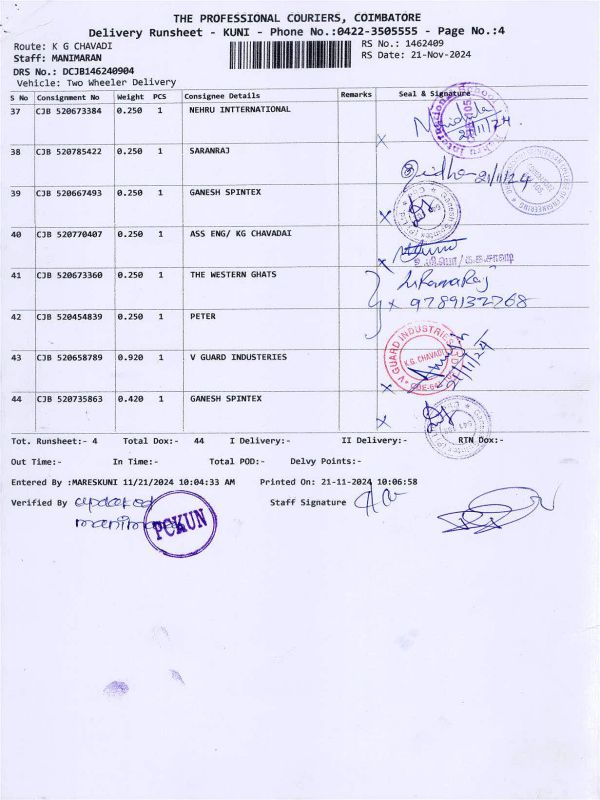 THE PROFESSIONAL COURIERS, COIMBATORE
Delivery Runsheet - KUNI - Phone No.:0422-3505555 - Page No.:4
Route: K G CHAVADI RS No.: 1462409
Staff: MANIMARAN RS Date: 21-Nov-2024
DRS No.: DCJB146240904
Vehicle: Two Wheeler Delivery
S No Consignment No Weight PCS Consignee Details Remarks Seal & Signature
37 CJB 520673384 0.250 1 NEHRU INTTERNATIONAL
21/11/24
38 CJB 520785422 0.250 1 SARANRAJ
21/11/24
39 CJB 520667493 0.250 1 GANESH SPINTEX
40 CJB 520770407 0.250 1 ASS ENG/ KG CHAVADAI
41 CJB 520673360 0.250 1 THE WESTERN GHATS
9789132768
42 CJB 520454839 0.250 1 PETER
43 CJB 520658789 0.920 1 V GUARD INDUSTERIES
V GUARD INDUSTRIES
K.G. CHAVADI
21/11/24
44 CJB 520735863 0.420 1 GANESH SPINTEX
Tot. Runsheet:- 4 Total Dox:- 44 I Delivery:- II Delivery:- RTN Dox:-
Out Time:- In Time:- Total POD:- Delvy Points:-
Entered By :MARESKUNI 11/21/2024 10:04:33 AM Printed On: 21-11-2024 10:06:58
Verified By updated Staff Signature
PCKUN